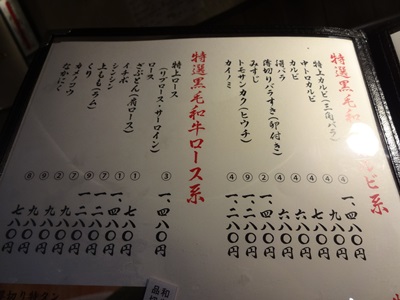 特選黒毛和
ルビ系
特上カルビ(三角バラ)
中トロカルビ
カルビ
薄切りバラすき(卵付き)
みすじ
トモサンカク(ヒウチ)
カイノミ
④
④
④
④
②
⑨
④
一、四八〇円
七八〇円
六八〇円
六八〇円
一、二八〇円
一、二八〇円
特選黒毛和牛ロース系
特上ロース
(リブロース・サーロイン)
ロース
ざぶとん(肩ロース)
イチボ
シンシン
上もも(ラム)
くり
カメノコウ
なかにく
③
①
①
⑦
⑦
②
②
⑨
⑥
一、四八〇円
七八〇円
一、四八〇円
九八〇円
九八〇円
九八〇円
七八〇円